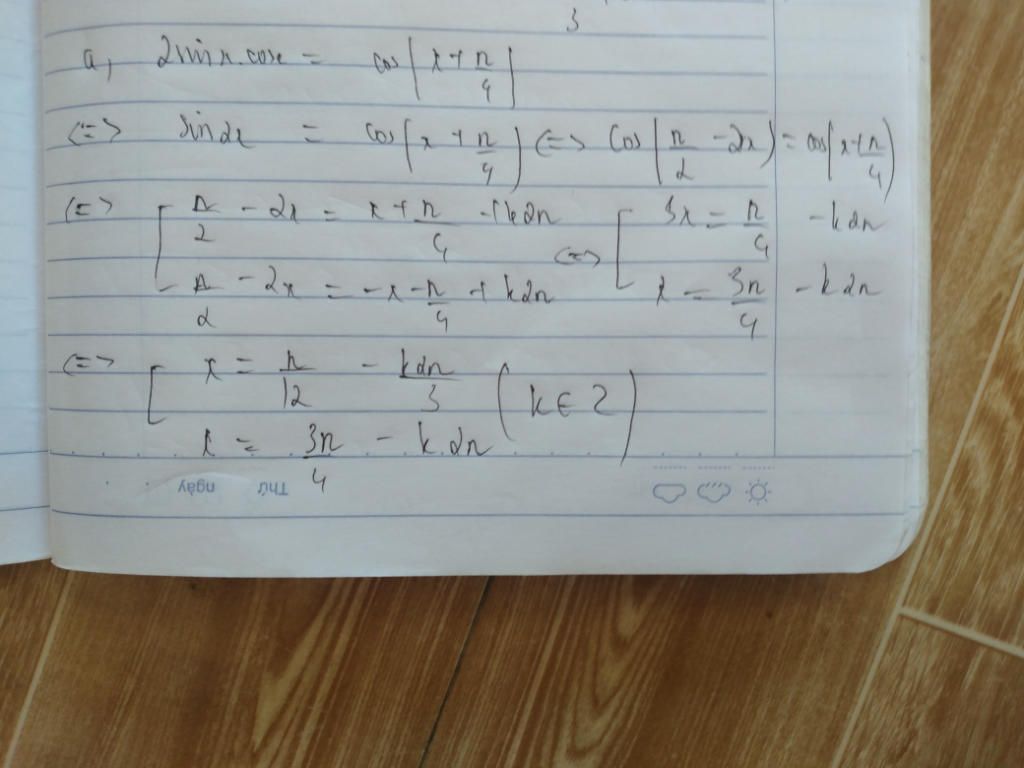 3
a, 2sinx.cosx = cos(x+π/4)
<=> sin2x = cos(x+π/4) <=> cos(π/2 -2x) = cos(x+π/4)
<=> [ π/2 - 2x = x+π/4 +k2π <=> [ 3x = π/4 -k2π
π/2 - 2x = -x-π/4 +k2π x = 3π/4 -k2π
<=> [ x = π/12 - k2π/3 (k∈Z)
x = 3π/4 - k.2π
Thứ ngày